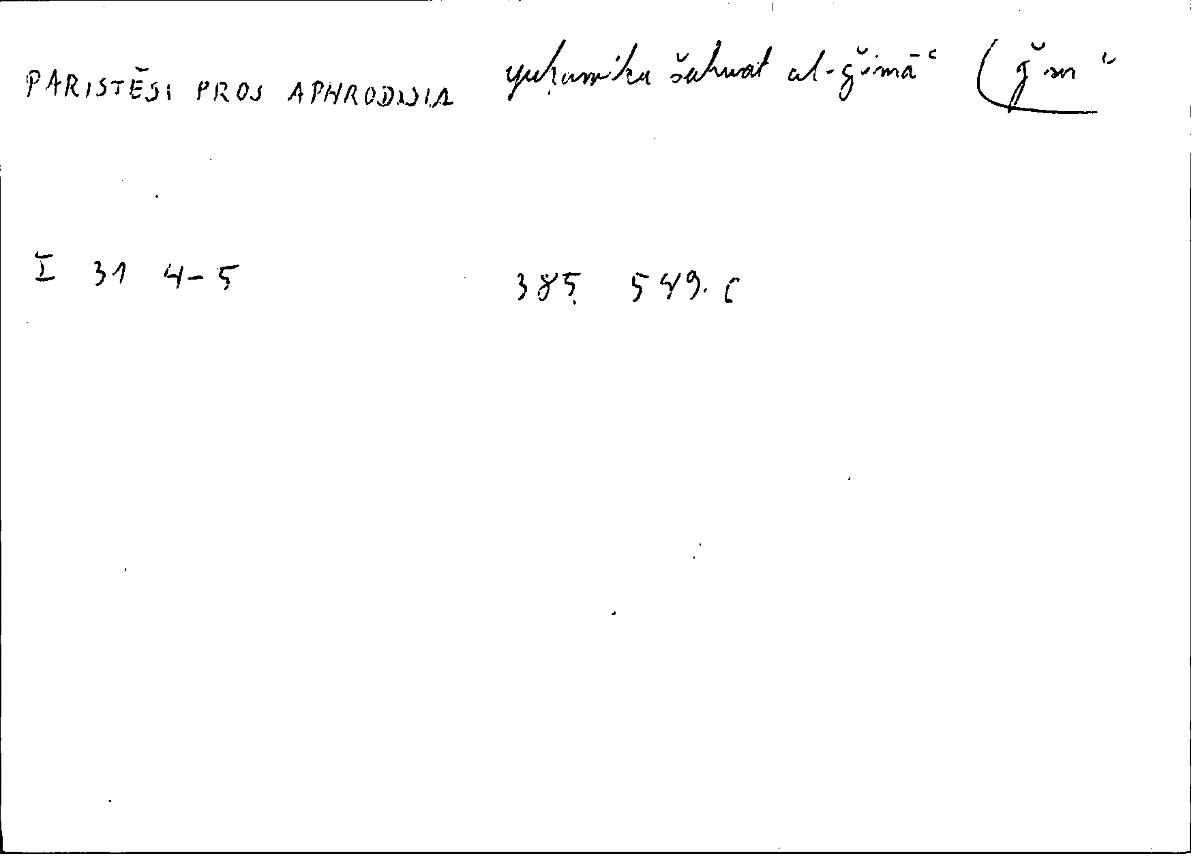 PARISTĒSI PROS APHRODISIA yuḥarriku šahwat al-ǧimāʿ (ǧmʿ
I 31 4-5 385 549.6